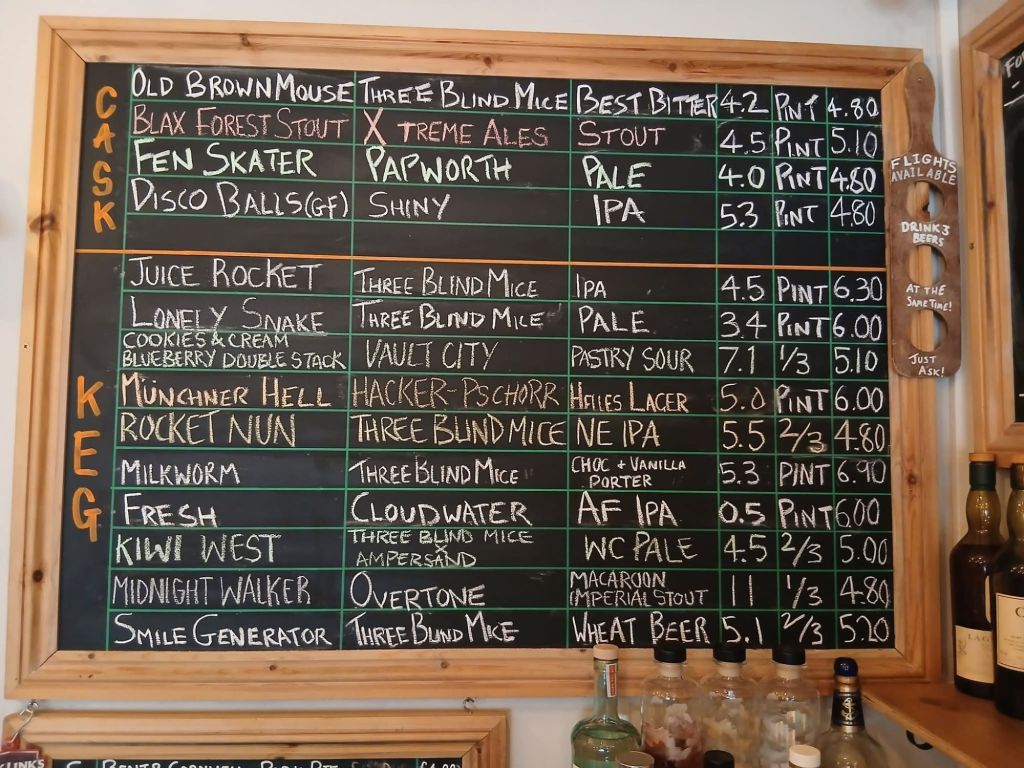 CASK
OLD BROWN MOUSE THREE BLIND MICE BEST BITTER 4.2 PINT 4.80
BLAX FOREST STOUT X TREME ALES STOUT 4.5 PINT 5.10
FEN SKATER PAPWORTH PALE 4.0 PINT 4.80
DISCO BALLS (GF) SHINY IPA 5.3 PINT 4.80
KEG
JUICE ROCKET THREE BLIND MICE IPA 4.5 PINT 6.30
LONELY SNAKE THREE BLIND MICE PALE 3.4 PINT 6.00
COOKIES & CREAM
BLUEBERRY DOUBLE STACK VAULT CITY PASTRY SOUR 7.1 1/3 5.10
MÜNCHNER HELL HACKER-PSCHORR HELLES LAGER 5.0 PINT 6.00
ROCKET NUN THREE BLIND MICE NE IPA 5.5 2/3 4.80
MILKWORM THREE BLIND MICE CHOC + VANILLA
PORTER 5.3 PINT 6.90
FRESH CLOUDWATER AF IPA 0.5 PINT 6.00
KIWI WEST THREE BLIND MICE
X
AMPERSAND WC PALE 4.5 2/3 5.00
MIDNIGHT WALKER OVERTONE MACAROON
IMPERIAL STOUT 11 1/3 4.80
SMILE GENERATOR THREE BLIND MICE WHEAT BEER 5.1 2/3 5.20
FLIGHTS
AVAILABLE
DRINK 3
BEERS
AT THE
SAME TIME!
JUST
ASK!